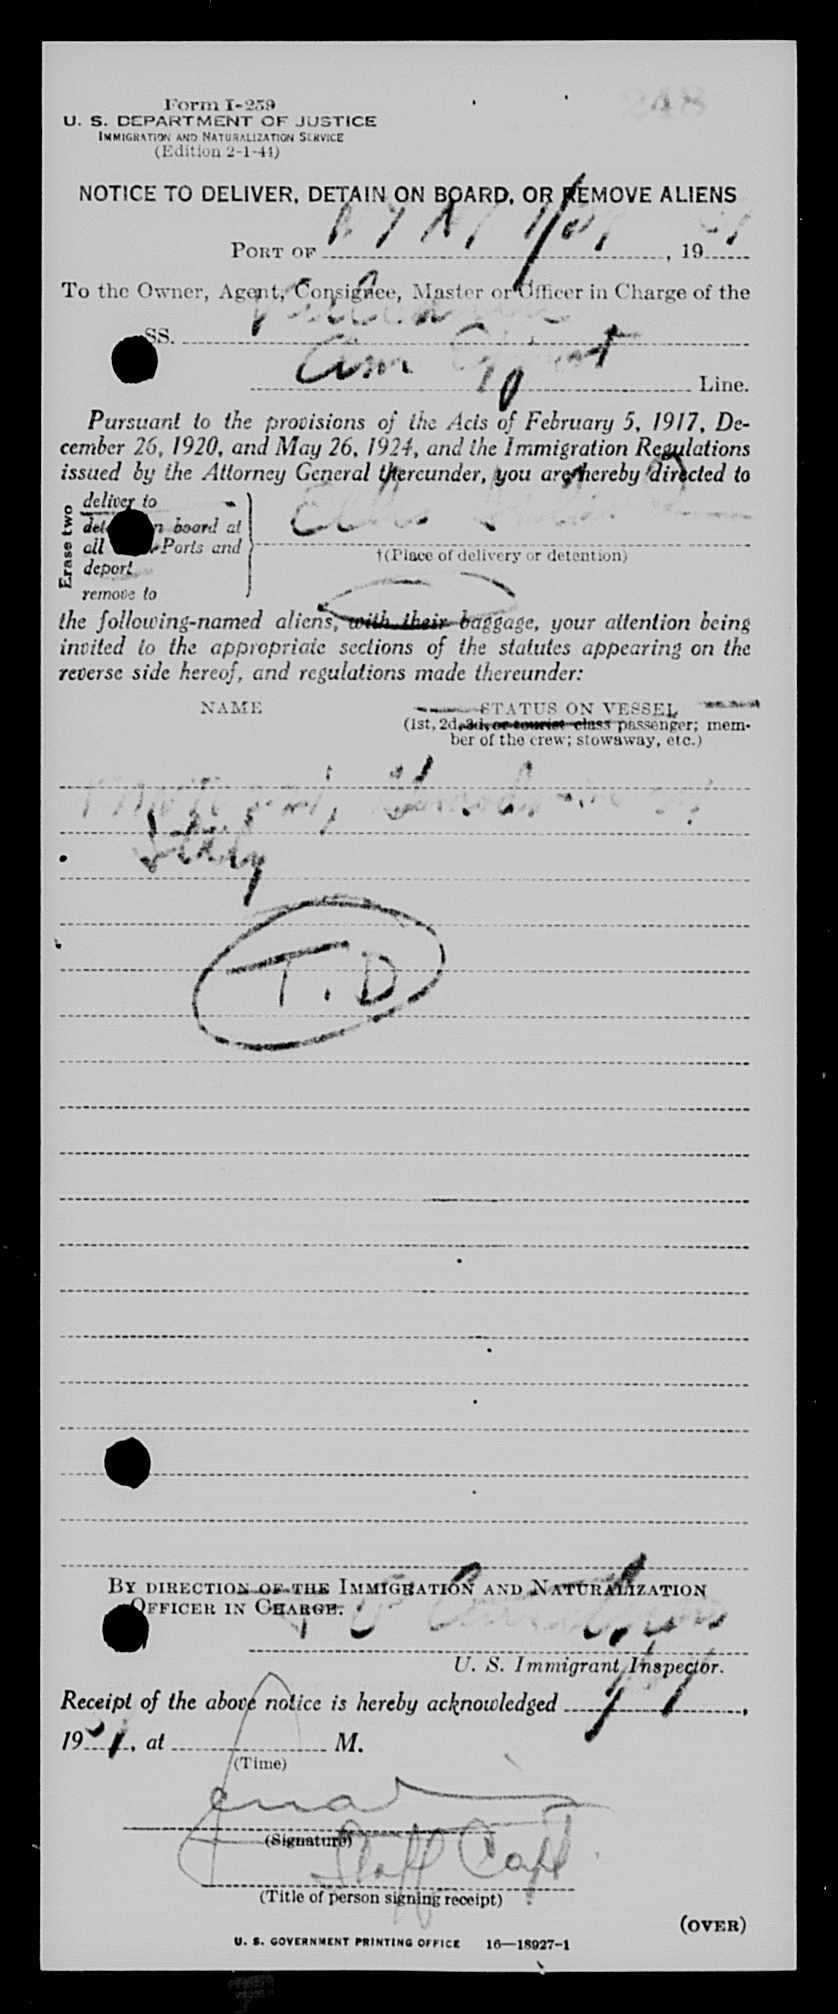 248
Form I-259
U. S. DEPARTMENT OF JUSTICE
IMMIGRATION AND NATURALIZATION SERVICE
(Edition 2-1-41)
NOTICE TO DELIVER, DETAIN ON BOARD, OR REMOVE ALIENS
PORT OF N Y N Y, 19
To the Owner, Agent, Consignee, Master or Officer in Charge of the
SS.
Am Export Line.
Pursuant to the provisions of the Acts of February 5, 1917, De-
cember 26, 1920, and May 26, 1924, and the Immigration Regulations
issued by the Attorney General thereunder, you are hereby directed to
Erase two
deliver to
board at
all Ports and
deport
remove to
Ellis Island
†(Place of delivery or detention)
the following-named aliens, with their baggage, your attention being
invited to the appropriate sections of the statutes appearing on the
reverse side hereof, and regulations made thereunder:
NAME STATUS ON VESSEL
(1st, 2d, 3d, or tourist class passenger; mem-
ber of the crew; stowaway, etc.)
T.D
BY DIRECTION OF THE IMMIGRATION AND NATURALIZATION
OFFICER IN CHARGE.
U. S. Immigrant Inspector.
Receipt of the above notice is hereby acknowledged ,
19 , at M.
(Time)
(Signature)
Staff Capt.
(Title of person signing receipt)
(OVER)
U. S. GOVERNMENT PRINTING OFFICE 16—18927-1